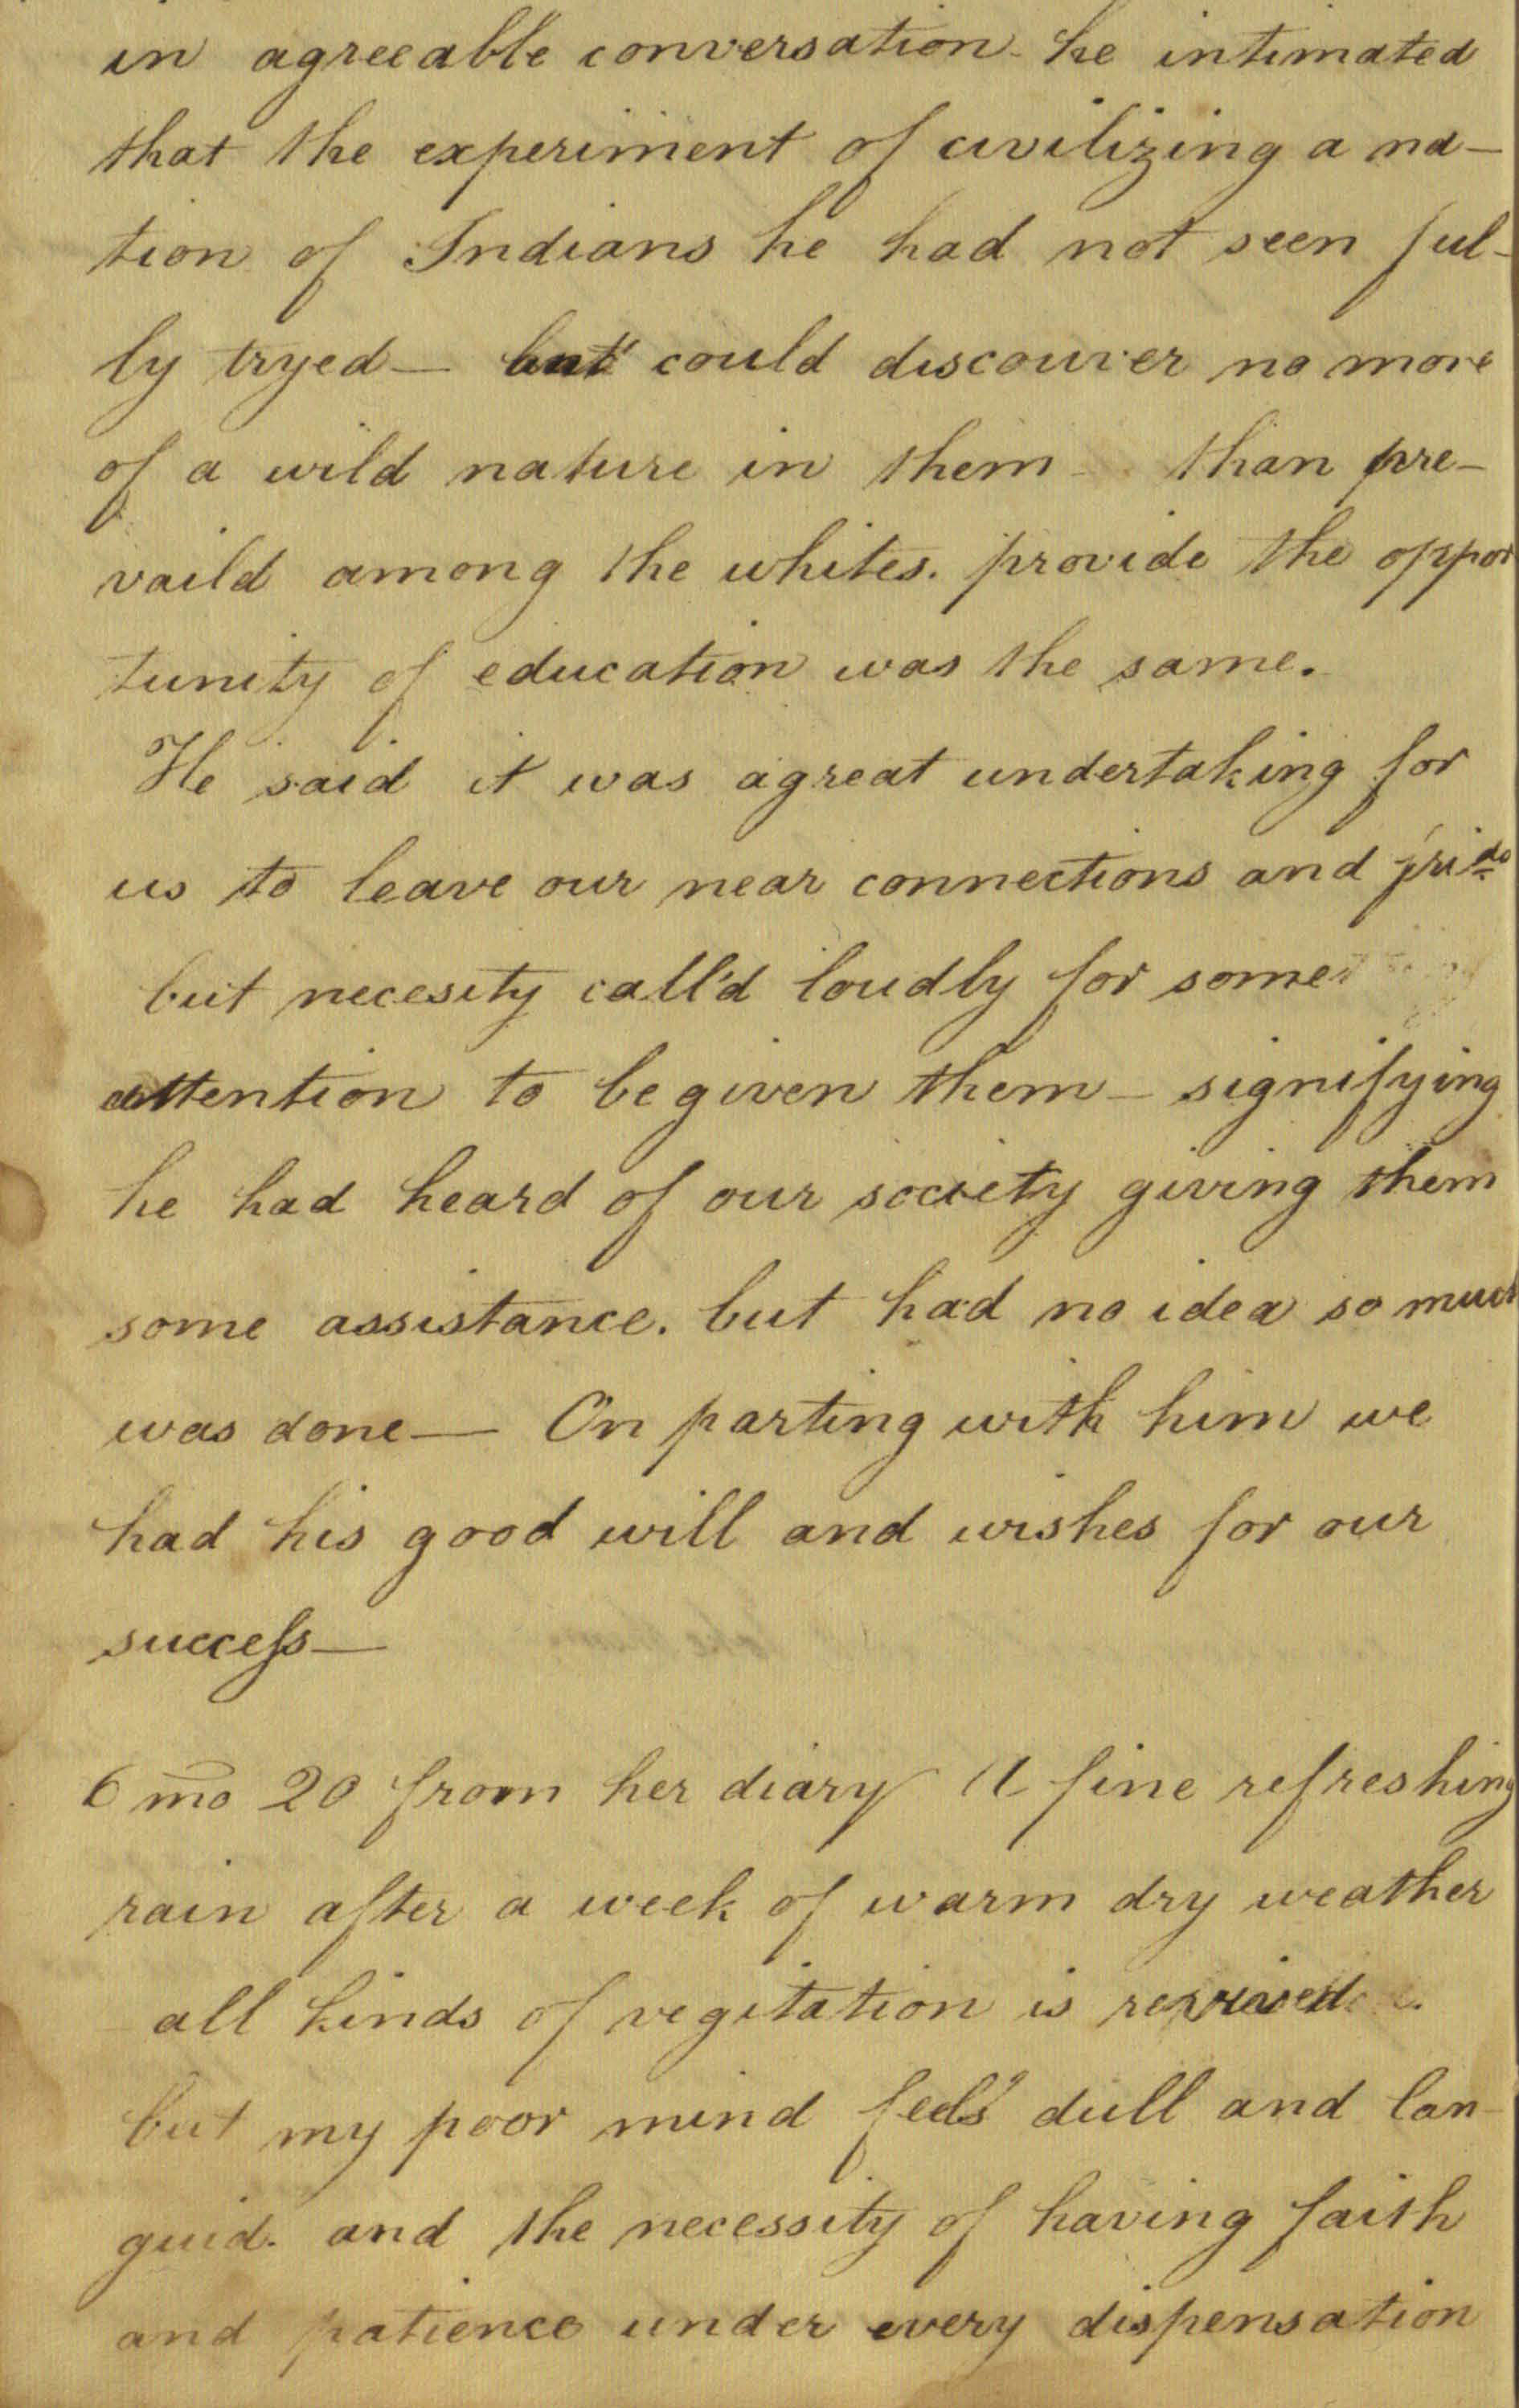 in agreeable conversation - he intimated
that the experiment of civilizing a na-
tion of Indians he had not seen ful-
ly tryed — but could discouver no more
of a wild nature in them - than pre-
vaild among the whites. provide the oppor
tunity of education was the same.
He said it was agreat undertaking for
us to leave our near connections and frids
but necesity call'd loudly for some
attention to be given them - signifying
he had heard of our society giving them
some assistance. but had no idea so much
was done — On parting with him we
had his good will and wishes for our
success —
6 mo 20 from her diary A fine refreshing
rain after a week of warm dry weather
all kinds of vegitation is revived
but my poor mind feels dull and lan-
guid. and the necessity of having faith
and patience under every dispensation